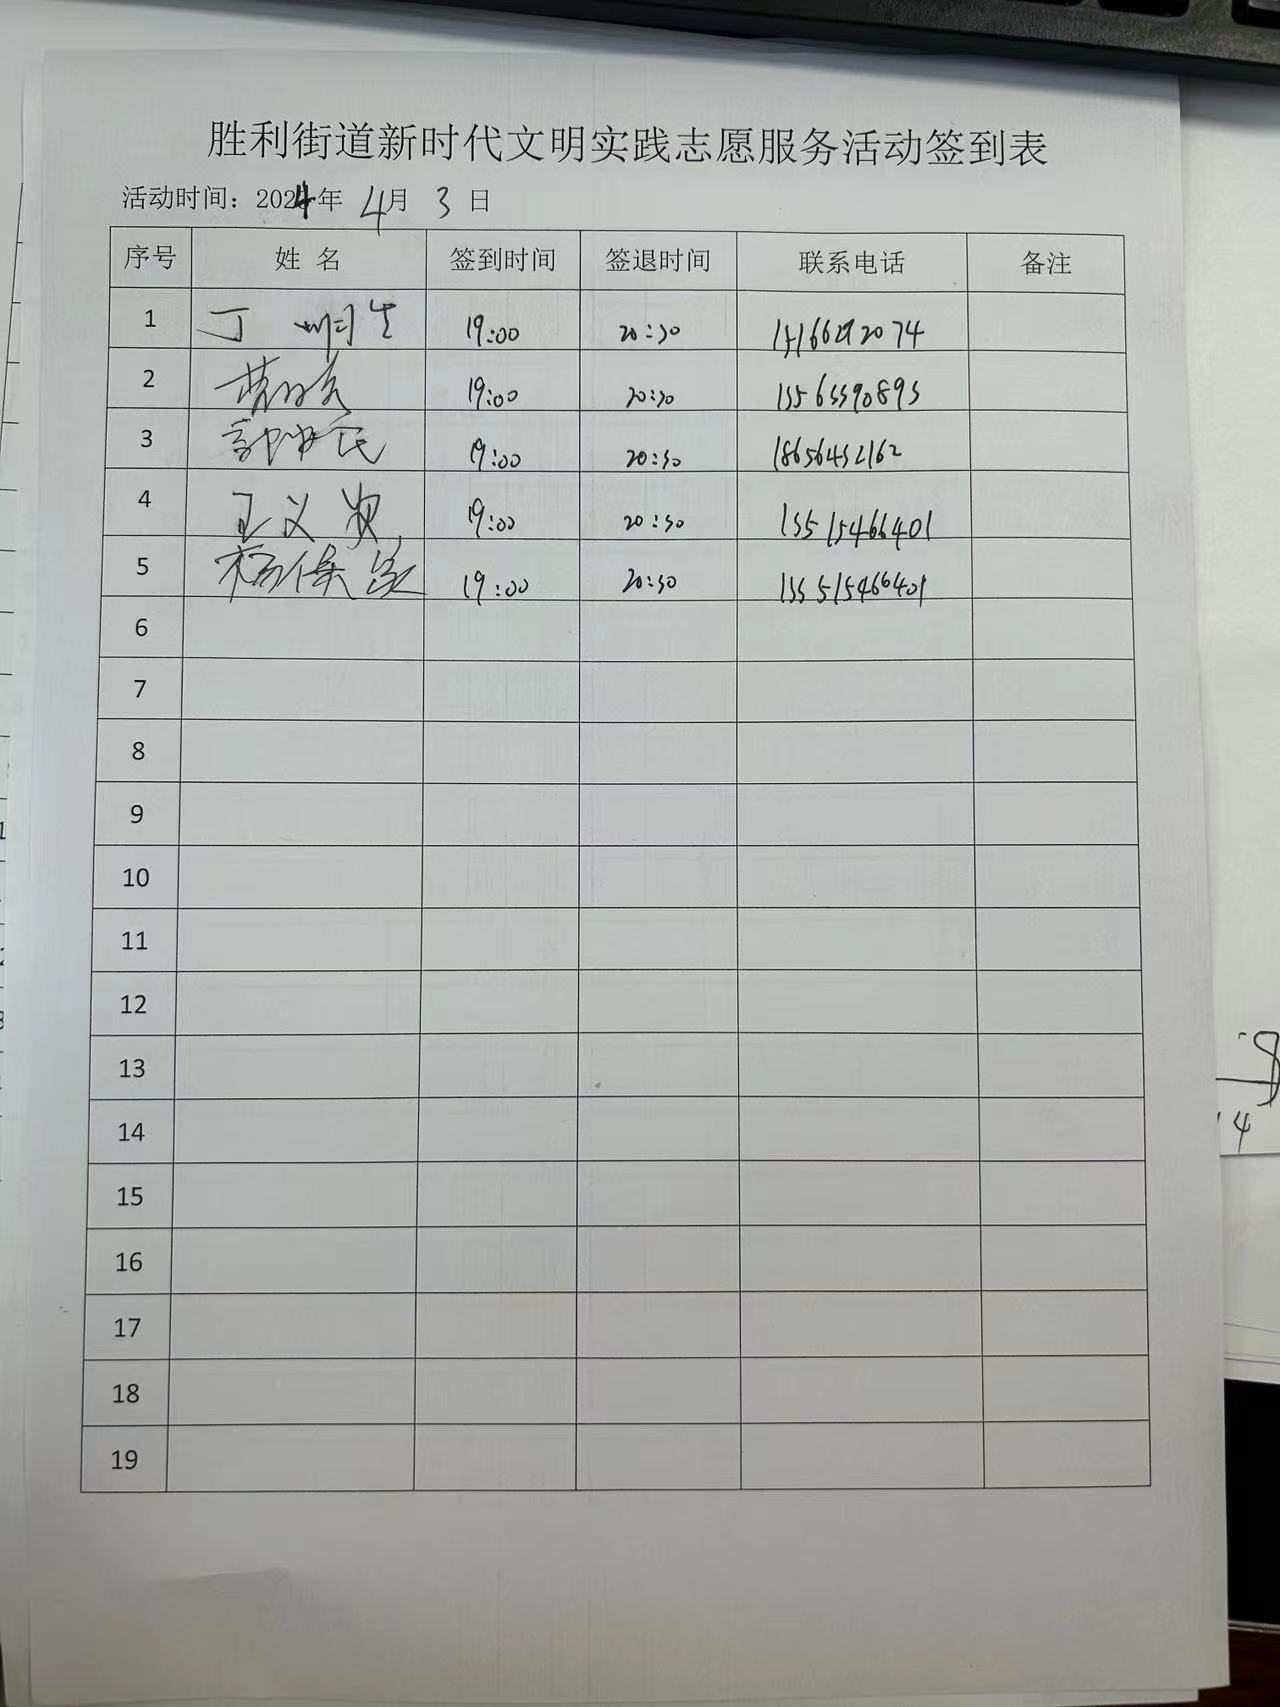 胜利街道新时代文明实践志愿服务活动签到表
活动时间：2024年 4月 3 日
序号 姓 名 签到时间 签退时间 联系电话 备注
1 丁 19:00 20:30
2 19:00 20:30 15563390893
3 19:00 20:30 18656452162
4 王义 19:00 20:30 15515466401
5 杨 19:00 20:30 15515466401
6
7
8
9
10
11
12
13
14
15
16
17
18
19